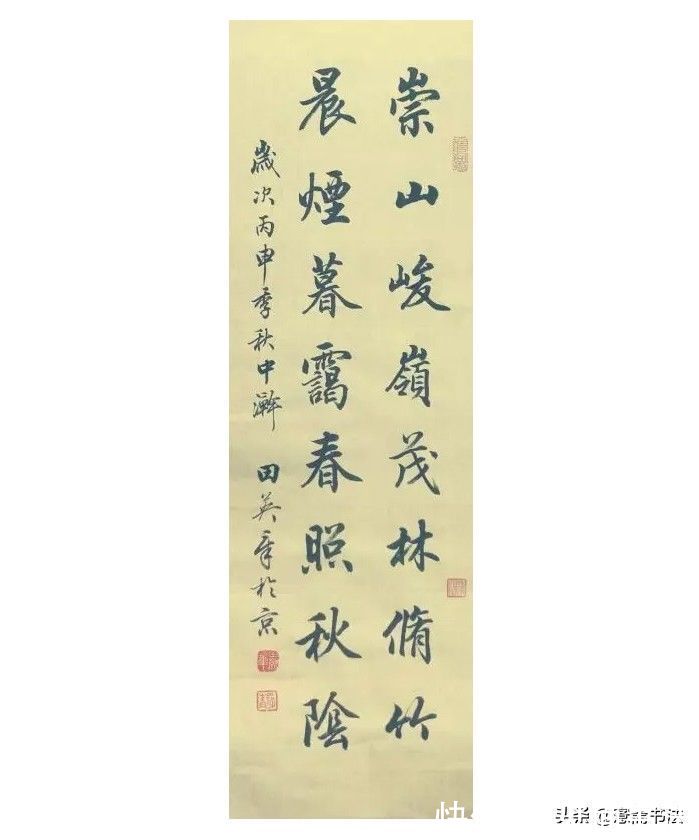 崇山峻嶺茂林脩竹
晨煙暮靄春照秋陰
歲次丙申季秋中澣 田英章於京
头条@
书法